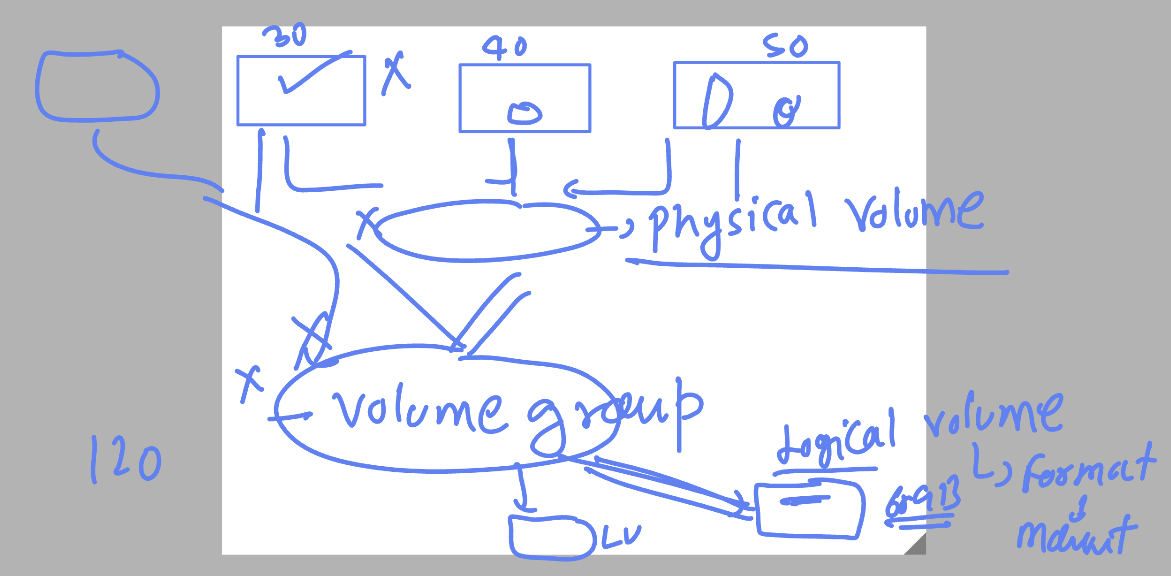 30 40 50
X
X
physical volume
X
X
volume group
Logical volume
format
&
mount
120
LV